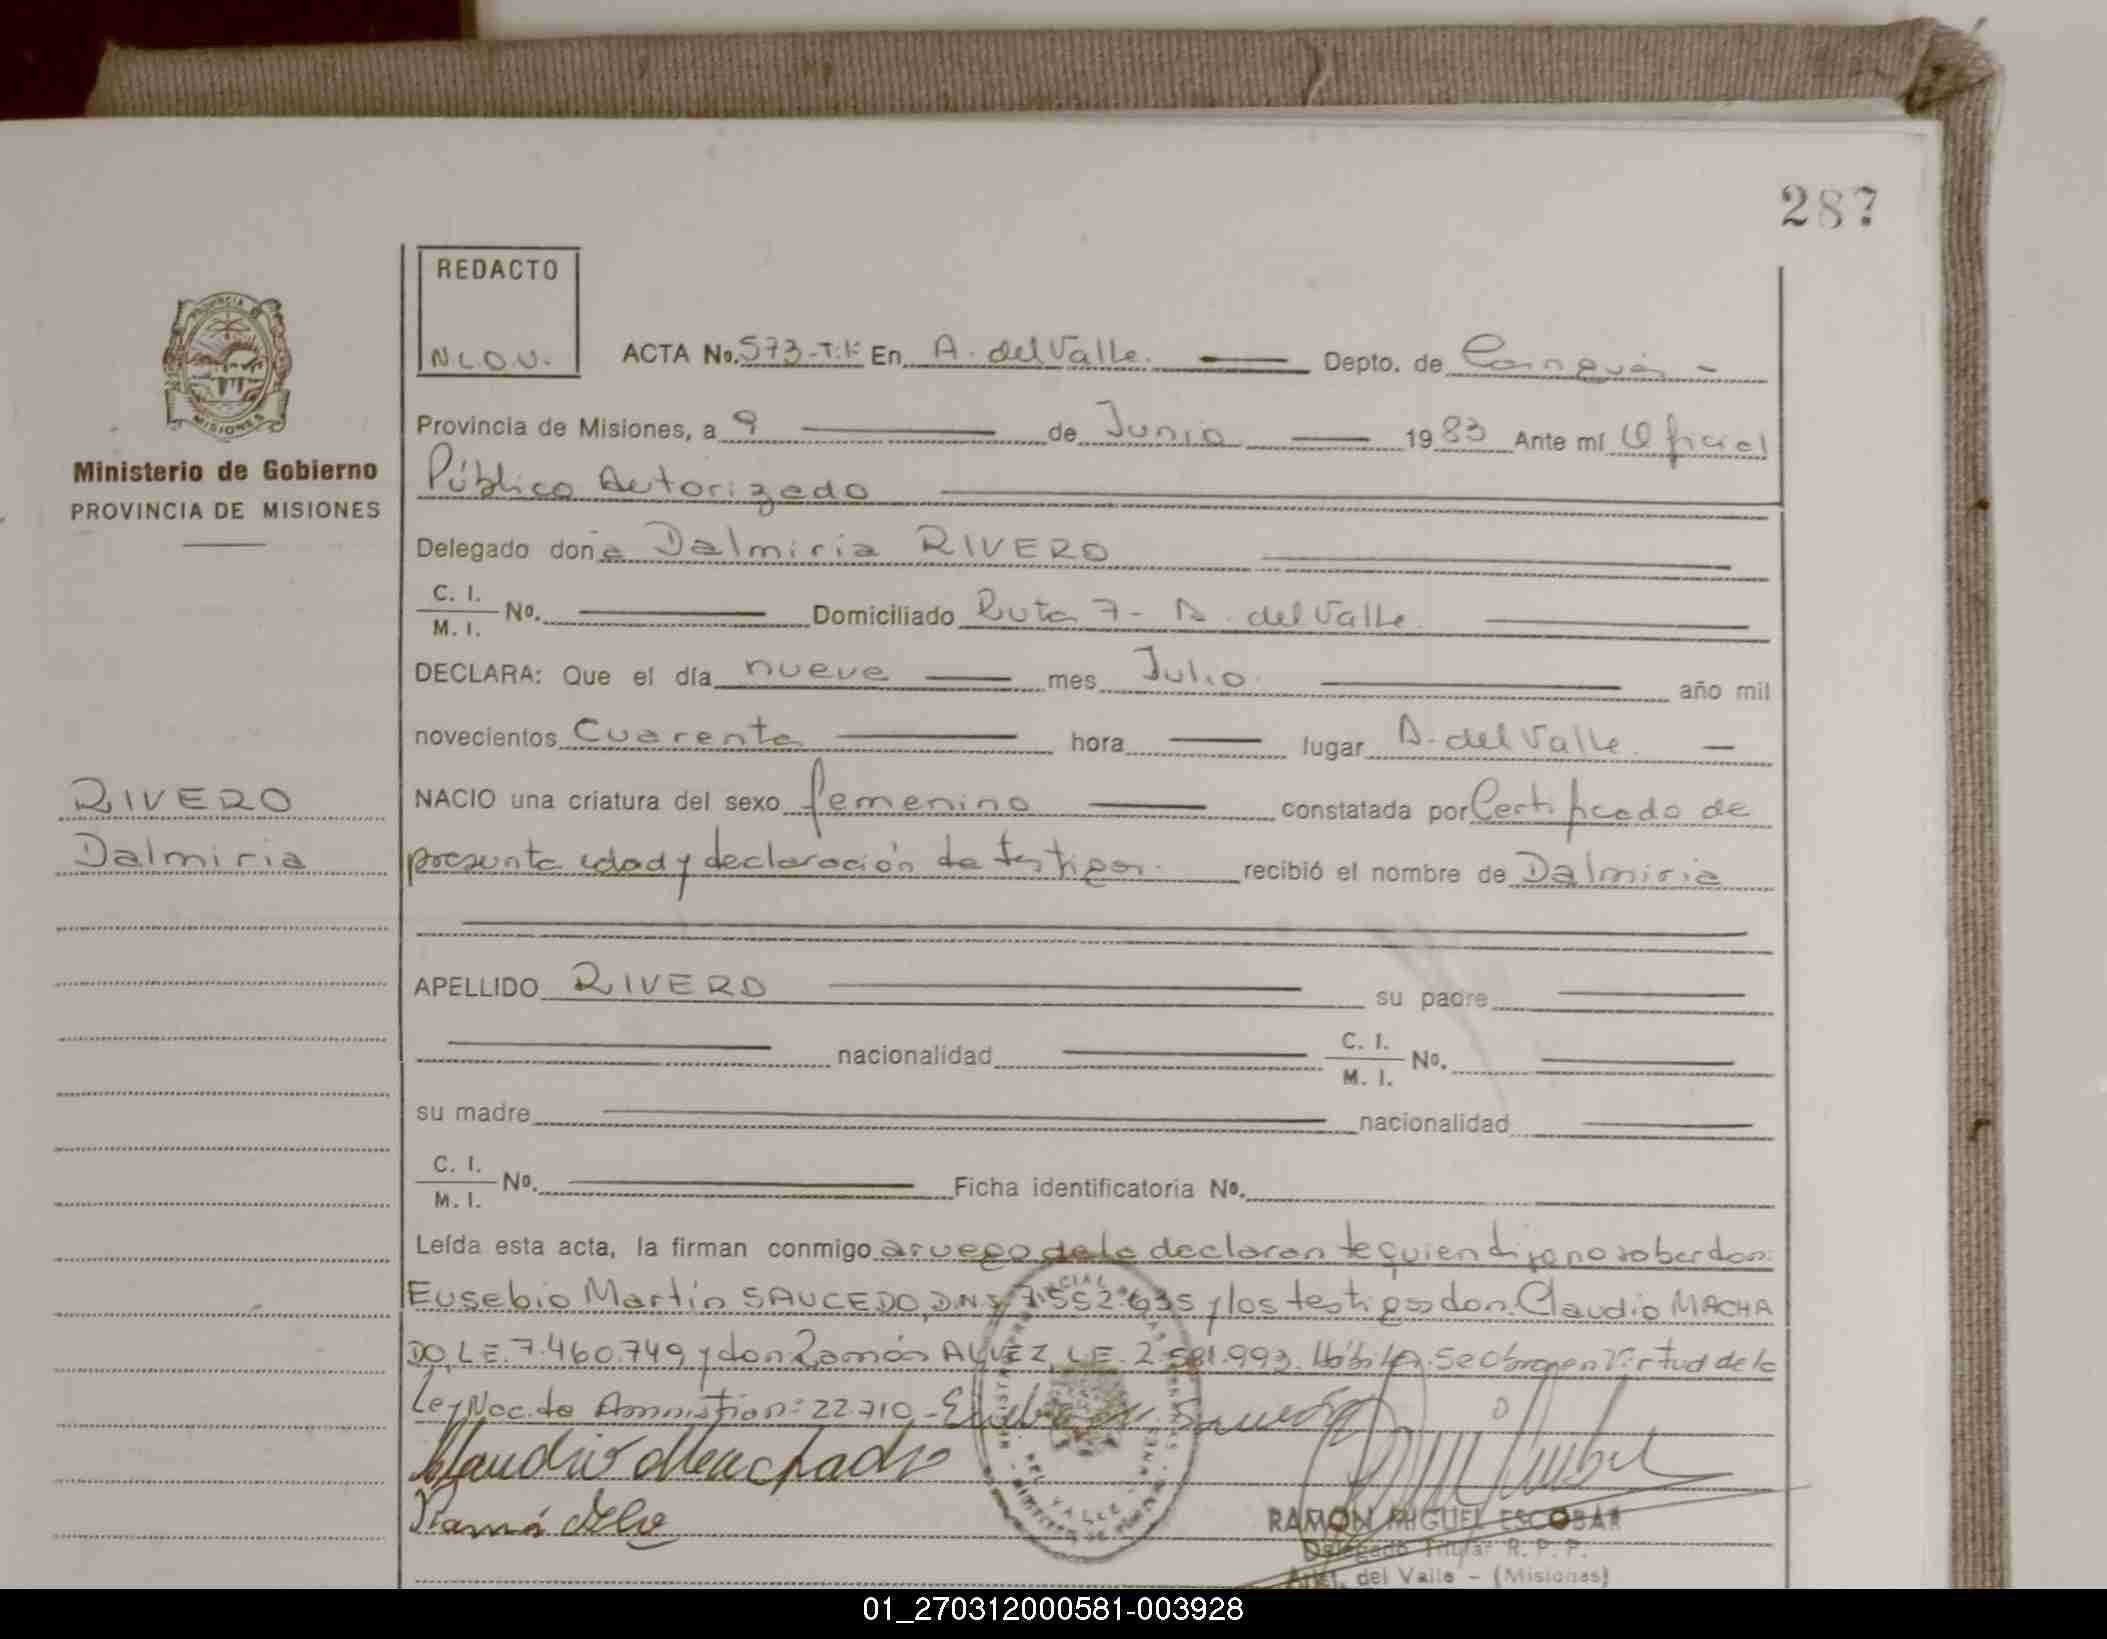 287
REDACTO
N.L.O.V.
ACTA No. 573-T.K En A. del Valle. Depto. de
Provincia de Misiones, a 9 de Junio 1983 Ante mí Oficial
Ministerio de Gobierno
Público Autorizado
PROVINCIA DE MISIONES
Delegado doña Dalmiria RIVERO
C. I.
M. I. No. Domiciliado Ruta 7 - A. del Valle.
DECLARA: Que el día nueve mes Julio. año mil
novecientos Cuarenta hora lugar A. del Valle.
RIVERO
NACIO una criatura del sexo femenino constatada por Certificado de
Dalmiria
presunta edad y declaración de testigos. recibió el nombre de Dalmiria
APELLIDO RIVERO su padre
nacionalidad C. I.
M. I. No.
su madre nacionalidad
C. I.
M. I. No. Ficha identificatoria No.
Leída esta acta, la firman conmigo a ruego de la declarante quien dijo no saber don:
Eusebio Martín SAUCEDO, D.N.I. 7.552.635 y los testigos don. Claudio MACHA
DO, L.E. 7.460.749 y don Ramón ALVEZ, L.E. 2.581.993. Hábiles. Se Obran en Virtud de la
Ley Nac. de Amnistía n: 22.710 -
Claudio Machado
RAMON MIGUEL ESCOBAR
Delegado Titular R. P. P.
Arist. del Valle - (Misiones)
01_270312000581-003928